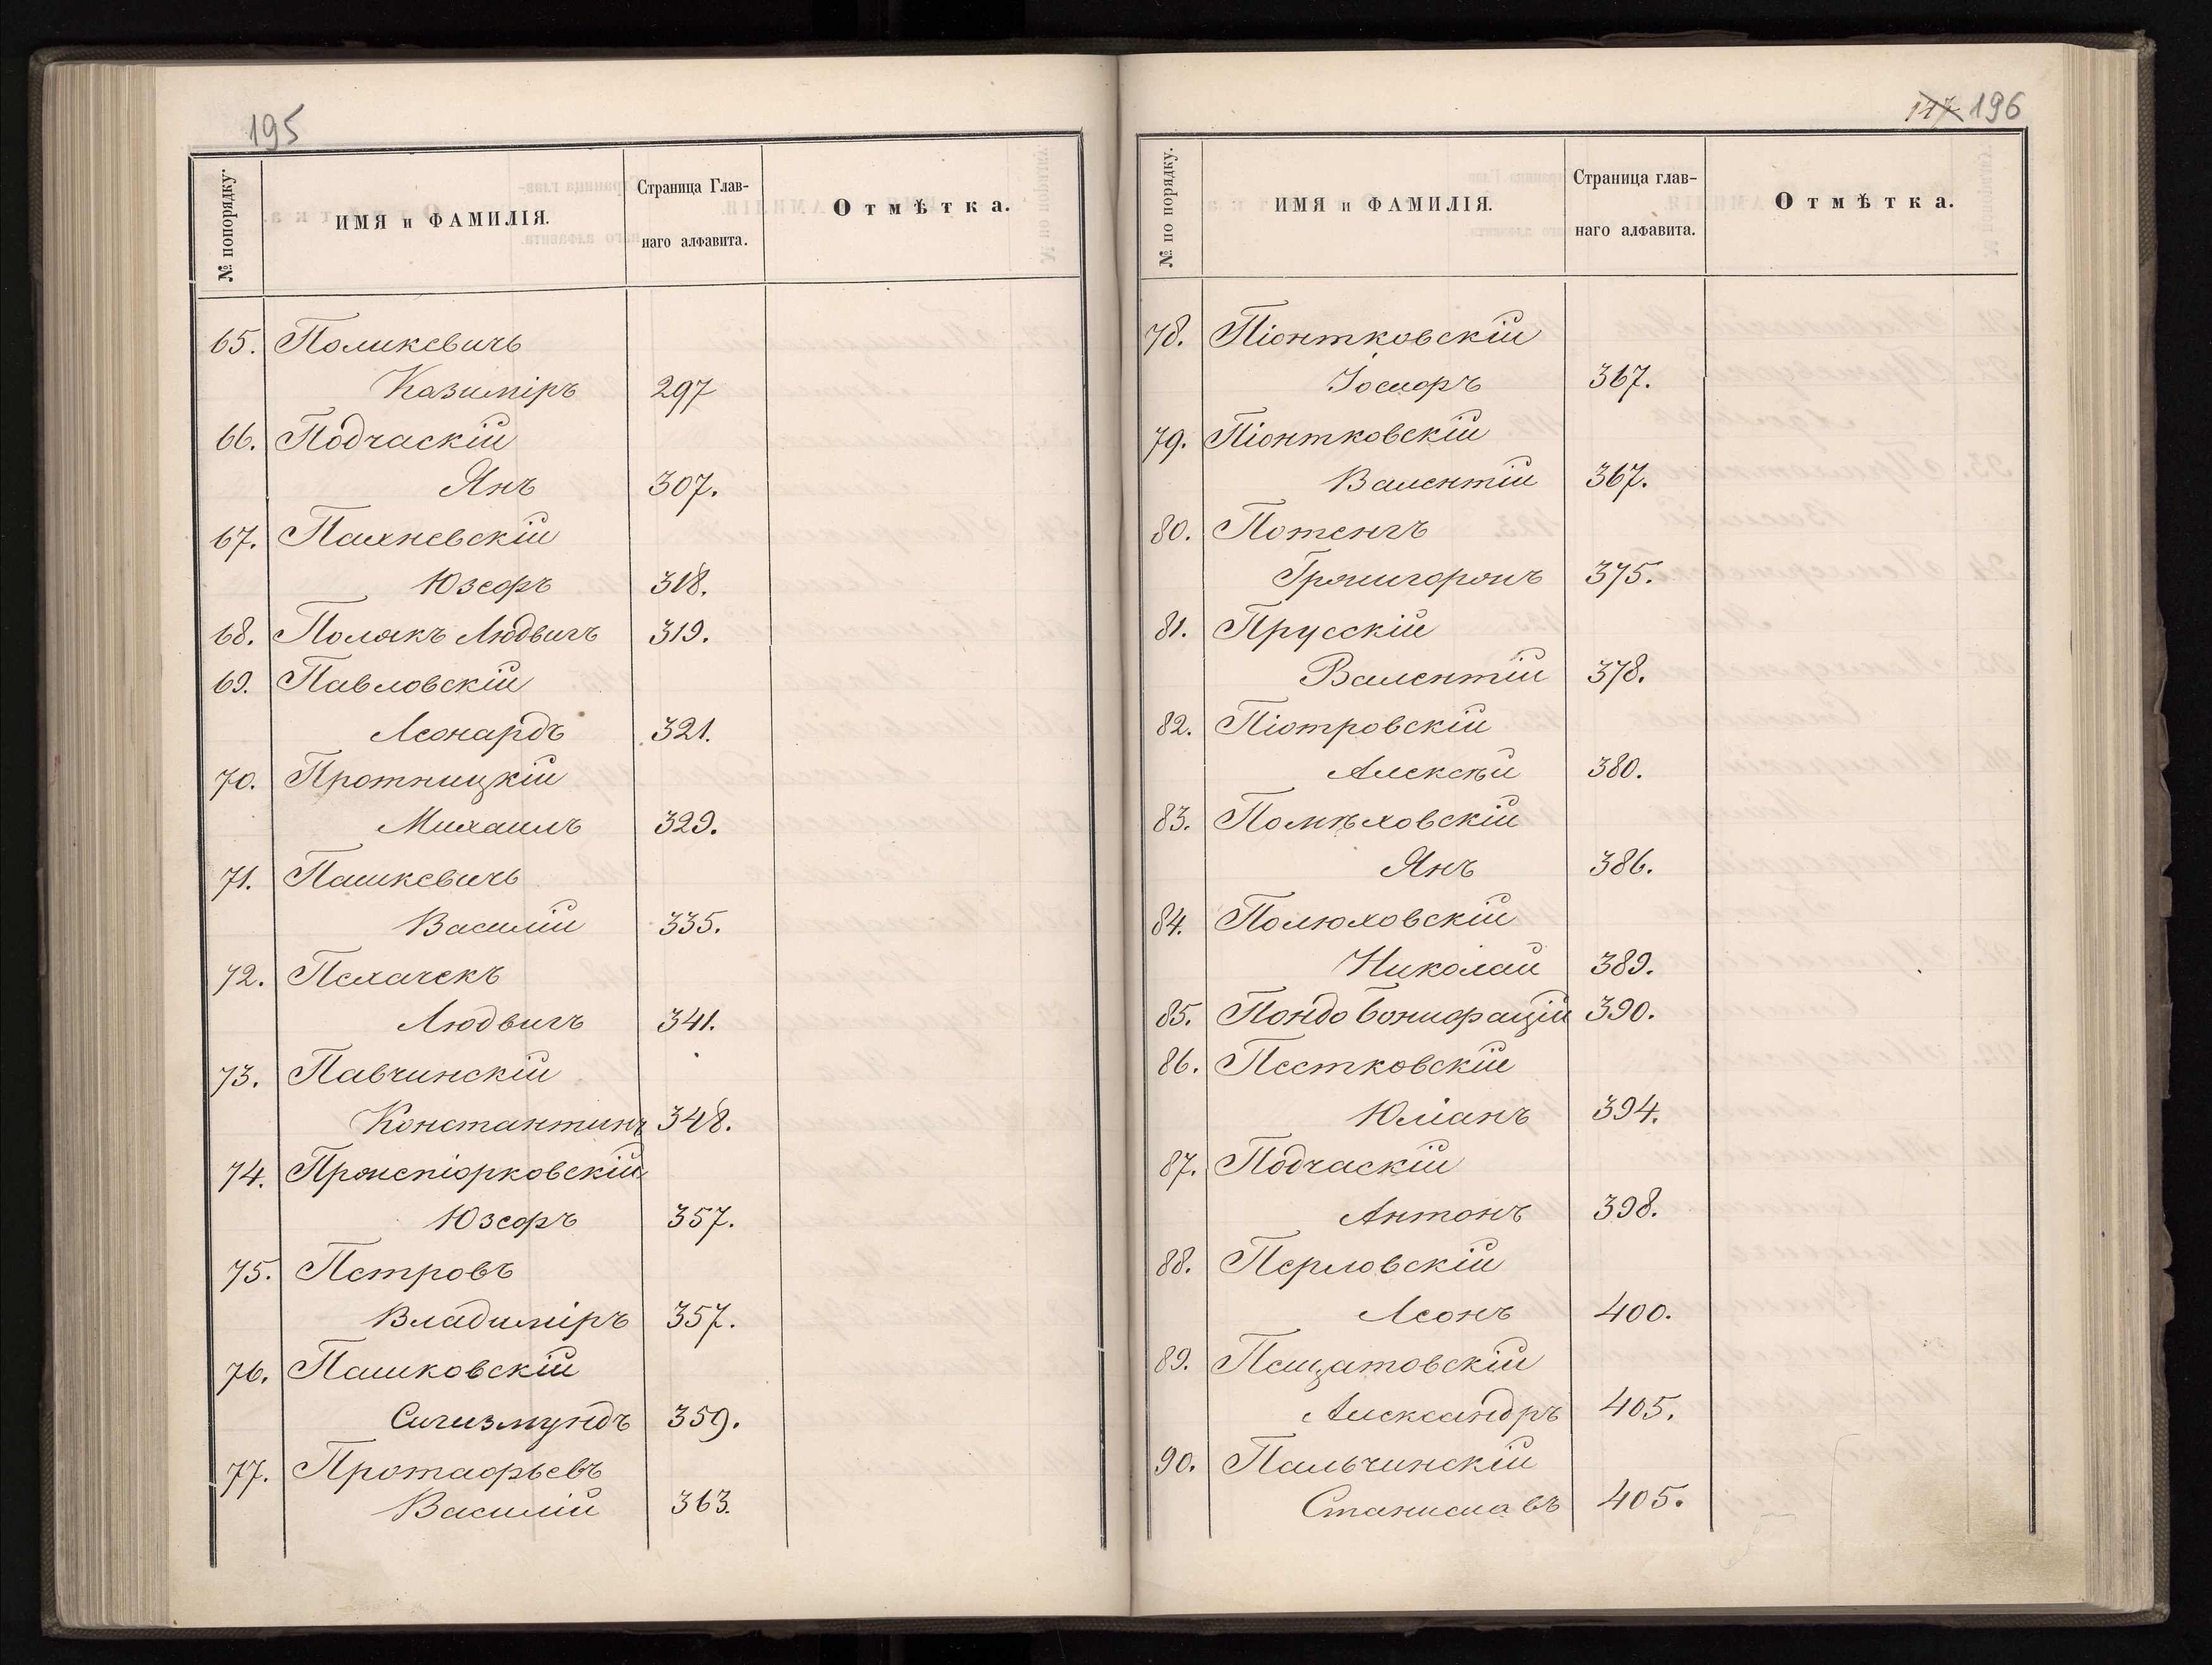 195
№ попорядку.
ИМЯ и ФАМИЛІЯ.
Страница Глав-
наго алфавита.
Отмѣтка.
65. Поликевичъ
Казиміръ 297
66. Подчаскій
Янъ 307.
67. Пахневскій
Юзефъ 318.
68. Полякъ Людвигъ 319.
69. Павловскій
Леонардъ 321.
70. Протницкій
Михаилъ 329.
71. Пашкевичъ
Василій 335.
72. Пехачекъ
Людвигъ 341.
73. Павчинскій
Константинъ 348.
74.
Юзефъ 357.
75. Петровъ
Владиміръ 357.
76. Пашковскій
Сигизмундъ 359.
77. Протафьевъ
Василій 363.
147 196
№ по порядку.
ИМЯ и ФАМИЛІЯ.
Страница глав-
наго алфавита.
Отмѣтка.
78. Піонтковскій
Іосифъ 367.
79. Піонтковскій
Валентій 367.
80. Потенгъ
375.
81. Прусскій
Валентій 378.
82. Піотровскій
Алексѣй 380.
83. Помѣховскій
Янъ 386.
84. Полюховскій
Николай 389.
85. Пондо Бонифацій 390.
86. Пестковскій
Юліанъ 394.
87. Подчаскій
Антонъ 398.
88. Перловскій
Леонъ 400.
89. Пещатовскій
Александръ 405.
90. Пальчинскій
Станиславъ 405.